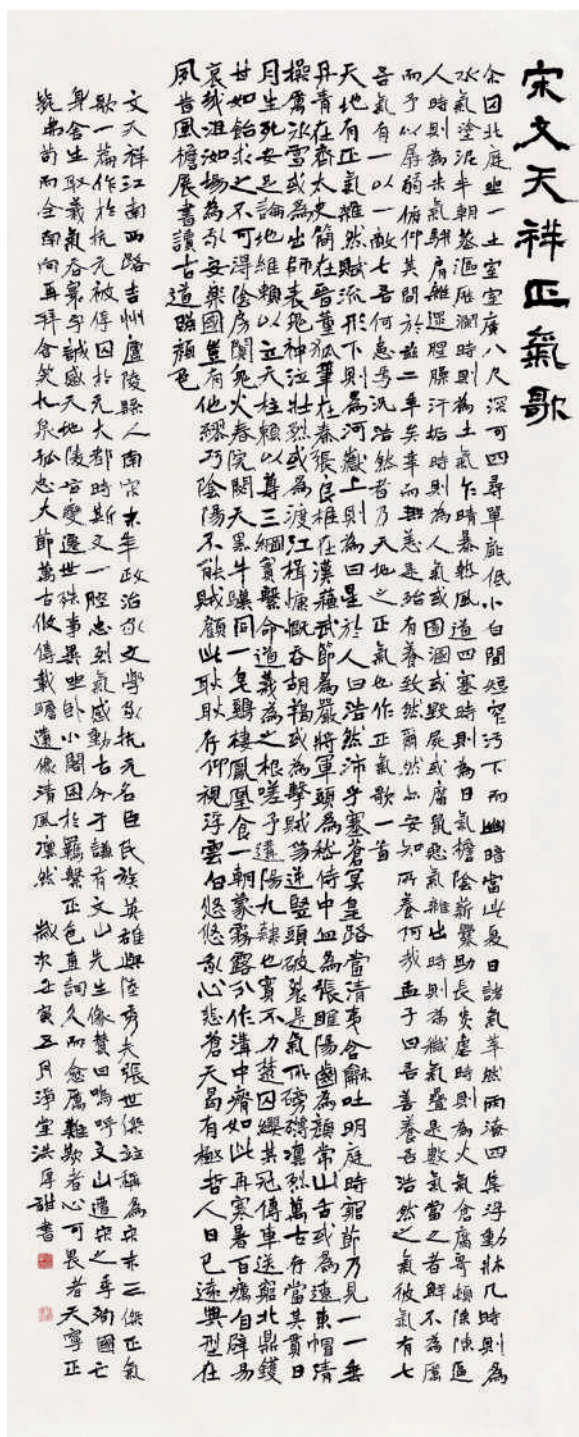 宋文天祥正氣歌
余囚北庭坐一土室室廣八尺深可四尋單扉低小白間短窄汙下而幽暗當此夏日諸氣萃然雨潦四集浮動牀几時則為
水氣塗泥半朝蒸漚歷瀾時則為土氣乍晴暴熱風道四塞時則為日氣檐陰薪爨助長炎虐時則為火氣倉腐寄頓陳陳逼
人時則為米氣駢肩雜遝腥臊汗垢時則為人氣或圊溷或毀屍或腐鼠惡氣雜出時則為穢氣疊是數氣當之者鮮不為厲
而予以孱弱俯仰其間於茲二年矣幸而無恙是殆有養致然爾然亦安知所養何哉孟子曰吾善養吾浩然之氣彼氣有七
吾氣有一以一敵七吾何患焉況浩然者乃天地之正氣也作正氣歌一首
天地有正氣雜然賦流形下則為河嶽上則為日星於人曰浩然沛乎塞蒼冥皇路當清夷含龢吐明庭時窮節乃見一一垂
丹青在齊太史簡在晉董狐筆在秦張良椎在漢蘇武節為嚴將軍頭為嵇侍中血為張睢陽齒為顏常山舌或為遼東帽清
操厲冰雪或為出師表鬼神泣壯烈或為渡江楫慷慨吞胡羯或為擊賊笏逆豎頭破裂是氣所磅礴凜烈萬古存當其貫日
月生死安足論地維賴以立天柱賴以尊三綱實繫命道義為之根嗟予遘陽九隸也實不力楚囚纓其冠傳車送窮北鼎鑊
甘如飴求之不可得陰房闃鬼火春院閟天黑牛驥同一皂鷄棲鳳凰食一朝蒙霧露分作溝中瘠如此再寒暑百癘自辟易
哀哉沮洳場為我安樂國豈有他繆巧陰陽不能賊顧此耿耿存仰視浮雲白悠悠我心悲蒼天曷有極哲人日已遠典型在
夙昔風檐展書讀古道照顏色
文天祥江南西路吉州廬陵縣人南宋末年政治家文學家抗元名臣民族英雄與陸秀夫張世傑並稱為宋末三傑正氣
歌一篇作於抗元被俘囚於元大都時斯文一腔忠烈氣感動古今于謙有文山先生像贊曰嗚呼文山遭宋之季殉國亡
身舍生取義氣吞寰宇誠感天地陵谷變遷世殊事異坐卧小閣困於羈繫正色直詞久而愈厲難欺者心可畏者天寧正
斃弗苟而全南向再拜含笑九泉孤忠大節萬古攸傳載瞻遺像清風凜然 歲次壬寅五月淨堂洪厚甜書